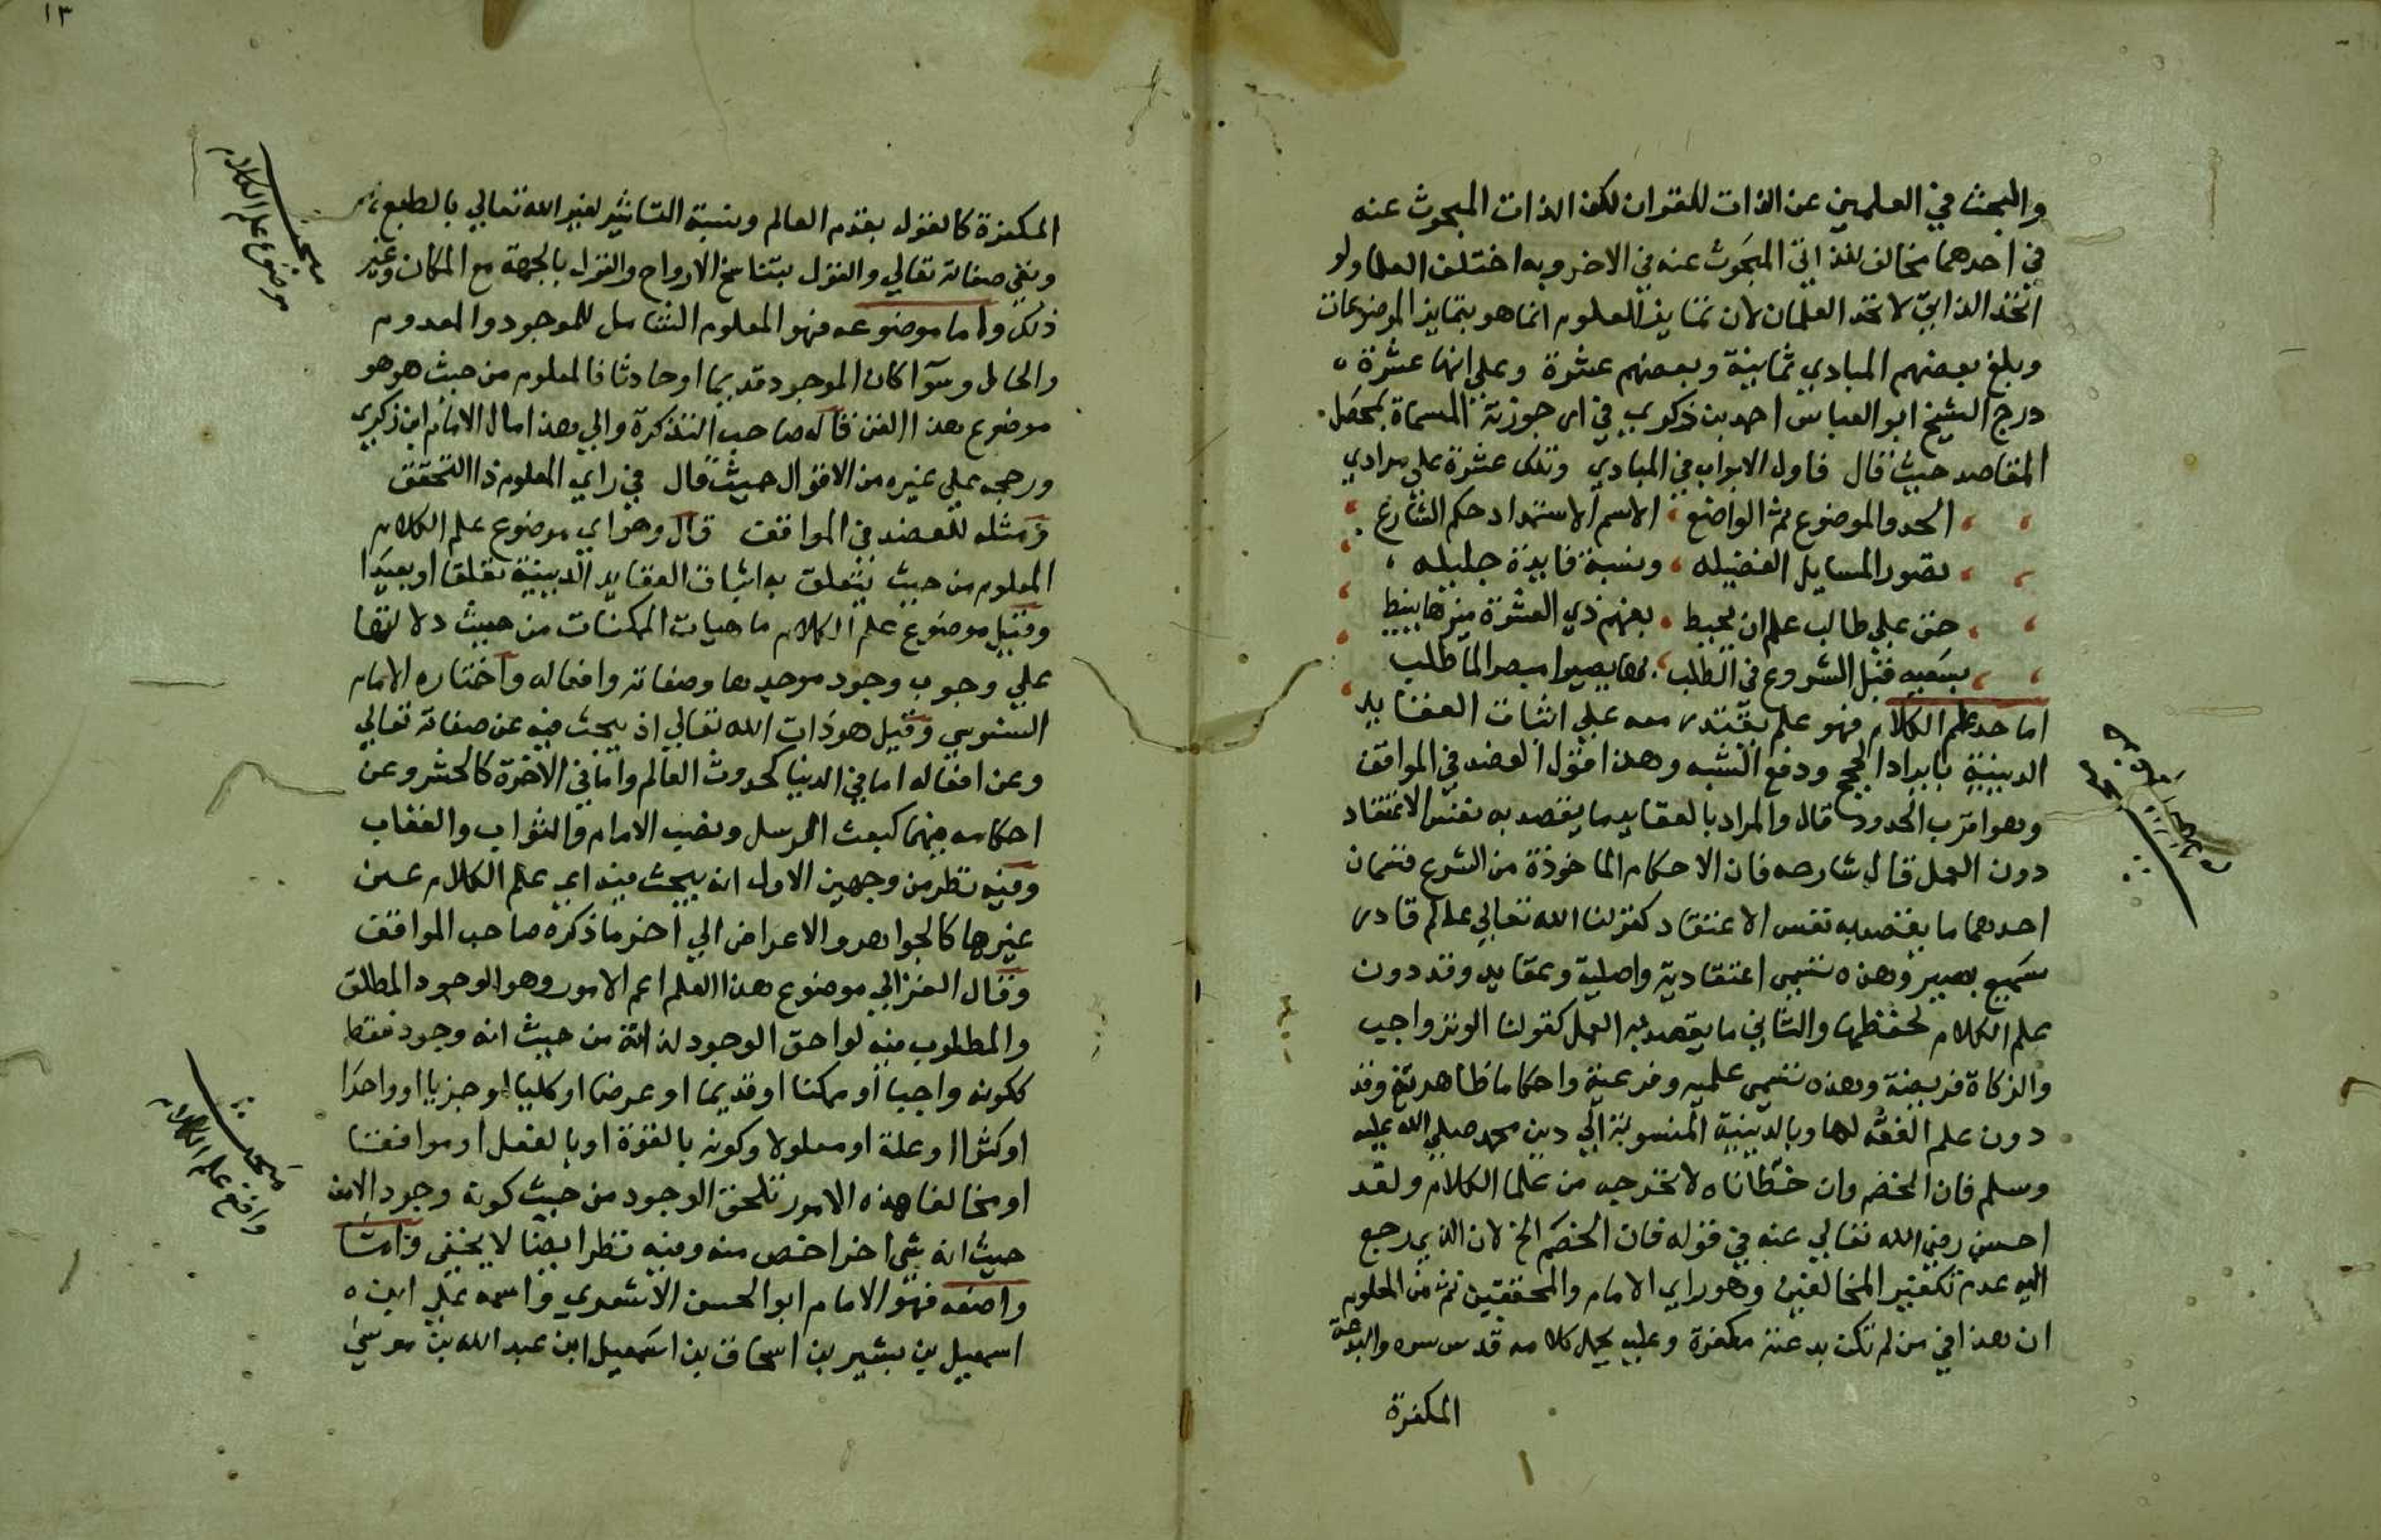 والبحث في العلمين عن الذات للقران لكن الذات المبحوث عنه
في احدهما مخالف للذاتي المبحوث عنه في الاخر وبه اختلف العلما ولو
اتحد الذاتي لاتحد العلمان لان تمايز العلوم انما هو بتمايز الموضوعات
وبلغ بعضهم المبادي ثمانية وبعضهم عشرة وعلي انها عشرة
درج الشيخ ابو العباس احمد بن زكري في ارجوزته المسماة بمحصل
المقاصد حيث قال فاول الابواب في المبادي وتلك عشرة علي مرادي
الحد والموضوع ثم الواضع الاسم الاستمداد حكم الشارع
تصور المسايل الفضيله ونسبة فايدة جليله
حق علي طالب علم ان يحيط بفهم ذي العشرة ميزها ينيط
بسعيه قبل الشروع في الطلب بها يصير مبصرا لما طلب
اما حد علم الكلام فهو علم يقتدر معه علي اثبات العقايد
الدينية بايراد الحجج ودفع الشبه وهذا قول العضد في المواقف
وهو اقرب الحدود قال والمراد بالعقايد ما يقصد به نفس الاعتقاد
دون العمل قال شارحه فان الاحكام الماخوذة من الشرع قسمان
احدهما ما يقصد به نفس الاعتقاد كقولنا الله تعالي عالم قادر
سميع بصير وهذه تسمي اعتقادية واصلية وعقايد وقد دون
علم الكلام لحفظها والثاني ما يقصد به العمل كقولنا الوتر واجب
والزكاة فريضة وهذه تسمي علميه وفرعية واحكاما ظاهرية وقد
دون علم الفقه لها وبالدينية المنسوبة الي دين محمد صلي الله عليه
وسلم فان الخصم وان خطاناه لا نخرجه من علما الكلام ولقد
احسن رضي الله تعالي عنه في قوله فان الخصم الخ لان الذي رجع
اليه عدم تكفير المخالفين وهو راي الامام والمحققين ثم من المعلوم
ان هذا في من لم تكن بدعته مكفرة وعليه يحمل كلامه قدس سره والبدعة
المكفرة
١٣
المكفرة كالقول بقدم العالم ونسبة التاثير لغير الله تعالي بالطبع
ونفي صفاته تعالي والقول بتناسخ الارواح والقول بالجهة مع المكان وغير
ذلك واما موضوعه فهو المعلوم الشامل للموجود والمعدوم
والحال وسوآ كان الموجود قديما او حادثا فالمعلوم من حيث هو هو
موضوع هذا الفن قاله صاحب التذكرة والي هذا مال الامام ابن زكري
ورجحه علي غيره من الاقوال حيث قال في راي المعلوم ذا التحقق
ومثله للعضد في المواقف قال وهو اي موضوع علم الكلام
المعلوم من حيث يتعلق به اثبات العقايد الدينية تعلقا او بعيدا
وقيل موضوع علم الكلام ماهيات الممكنات من حيث دلالتها
علي وجوب وجود موجدها وصفاته وافعاله واختاره الامام
السنوسي وقيل هو ذات الله تعالي اذ يبحث فيه عن صفاته تعالي
وعن افعاله اما في الدنيا كحدوث العالم واما في الاخرة كالحشر وعن
احكامه فيهما كبعث الرسل ونصب الامام والثواب والعقاب
وفيه نظر من وجهين الاول انه يبحث فيه اي علم الكلام عن
غيرها كالجواهر والاعراض الي اخر ما ذكره صاحب المواقف
وقال الغزالي موضوع هذا العلم اعم الامور وهو الوجود المطلق
والمطلوب فيه لواحق الوجود لذاته من حيث انه وجود فقط
ككونه واجبا او ممكنا او قديما او عرضا او كليا او جزيا او واحدا
او كثيرا او علة او معلولا وكونه بالقوة او بالفعل او موافقا
او مخالفا هذه الامور تلحق الوجود من حيث كونه وجود الامن
حيث انه شي اخر اخص منه وفيه نظر ايضا لا يخفي واما
واضعه فهو الامام ابو الحسن الاشعري واسمه علي ابن
اسمعيل بن بشير بن اسحاق بن اسمعيل ابن عبد الله بن موسي
مبحث
موضوع علم الكلام
مبحث
واضع علم الكلام